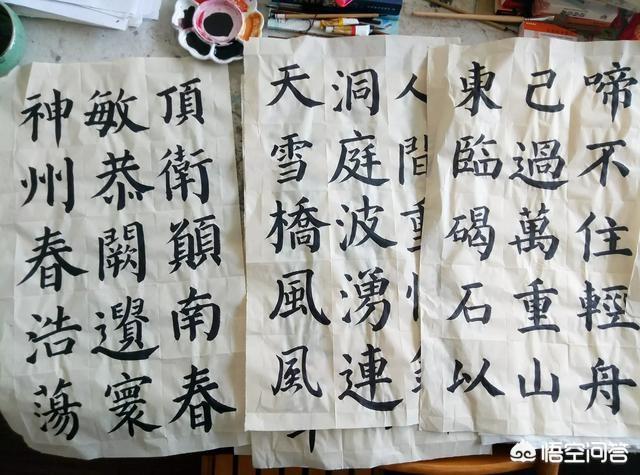 啼不住輕舟
己過萬重山
東臨碣石以
人間重
洞庭波湧連
天雪橋風風
頂衛顛南春
敏恭闕寰
神州春浩蕩
悟空问答